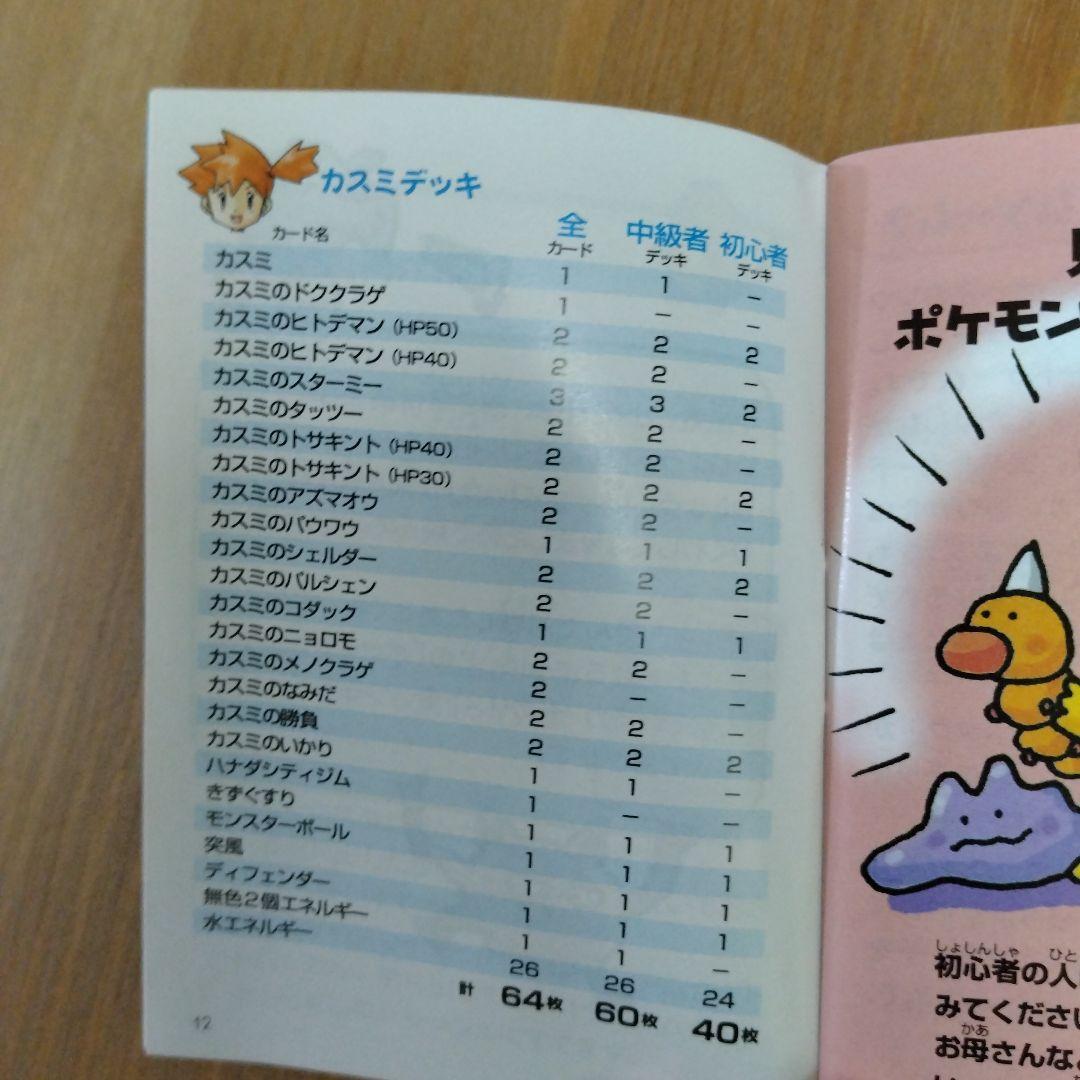 カスミデッキ
カード名 全カード 中級者デッキ 初心者デッキ
カスミ 1 1 –
カスミのドククラゲ 1 – –
カスミのヒトデマン (HP50) 2 2 2
カスミのヒトデマン (HP40) 2 2 –
カスミのスターミー 3 3 2
カスミのタッツー 2 2 –
カスミのトサキント (HP40) 2 2 –
カスミのトサキント (HP30) 2 2 2
カスミのアズマオウ 2 2 –
カスミのパウワウ 1 1 1
カスミのシェルダー 2 2 2
カスミのパルシェン 2 2 –
カスミのコダック 1 1 1
カスミのニョロモ 2 2 –
カスミのメノクラゲ 2 – –
カスミのなみだ 2 2 –
カスミの勝負 2 2 2
カスミのいかり 1 1 –
ハナダシティジム 1 – –
きずぐすり 1 1 1
モンスターボール 1 1 1
突風 1 1 1
ディフェンダー 1 1 1
無色2個エネルギー 1 1 –
水エネルギー 26 26 24
計 64枚 60枚 40枚
12
ポケモン
しょしんしゃ ひと
初心者の人
みてください
かあ
お母さんな